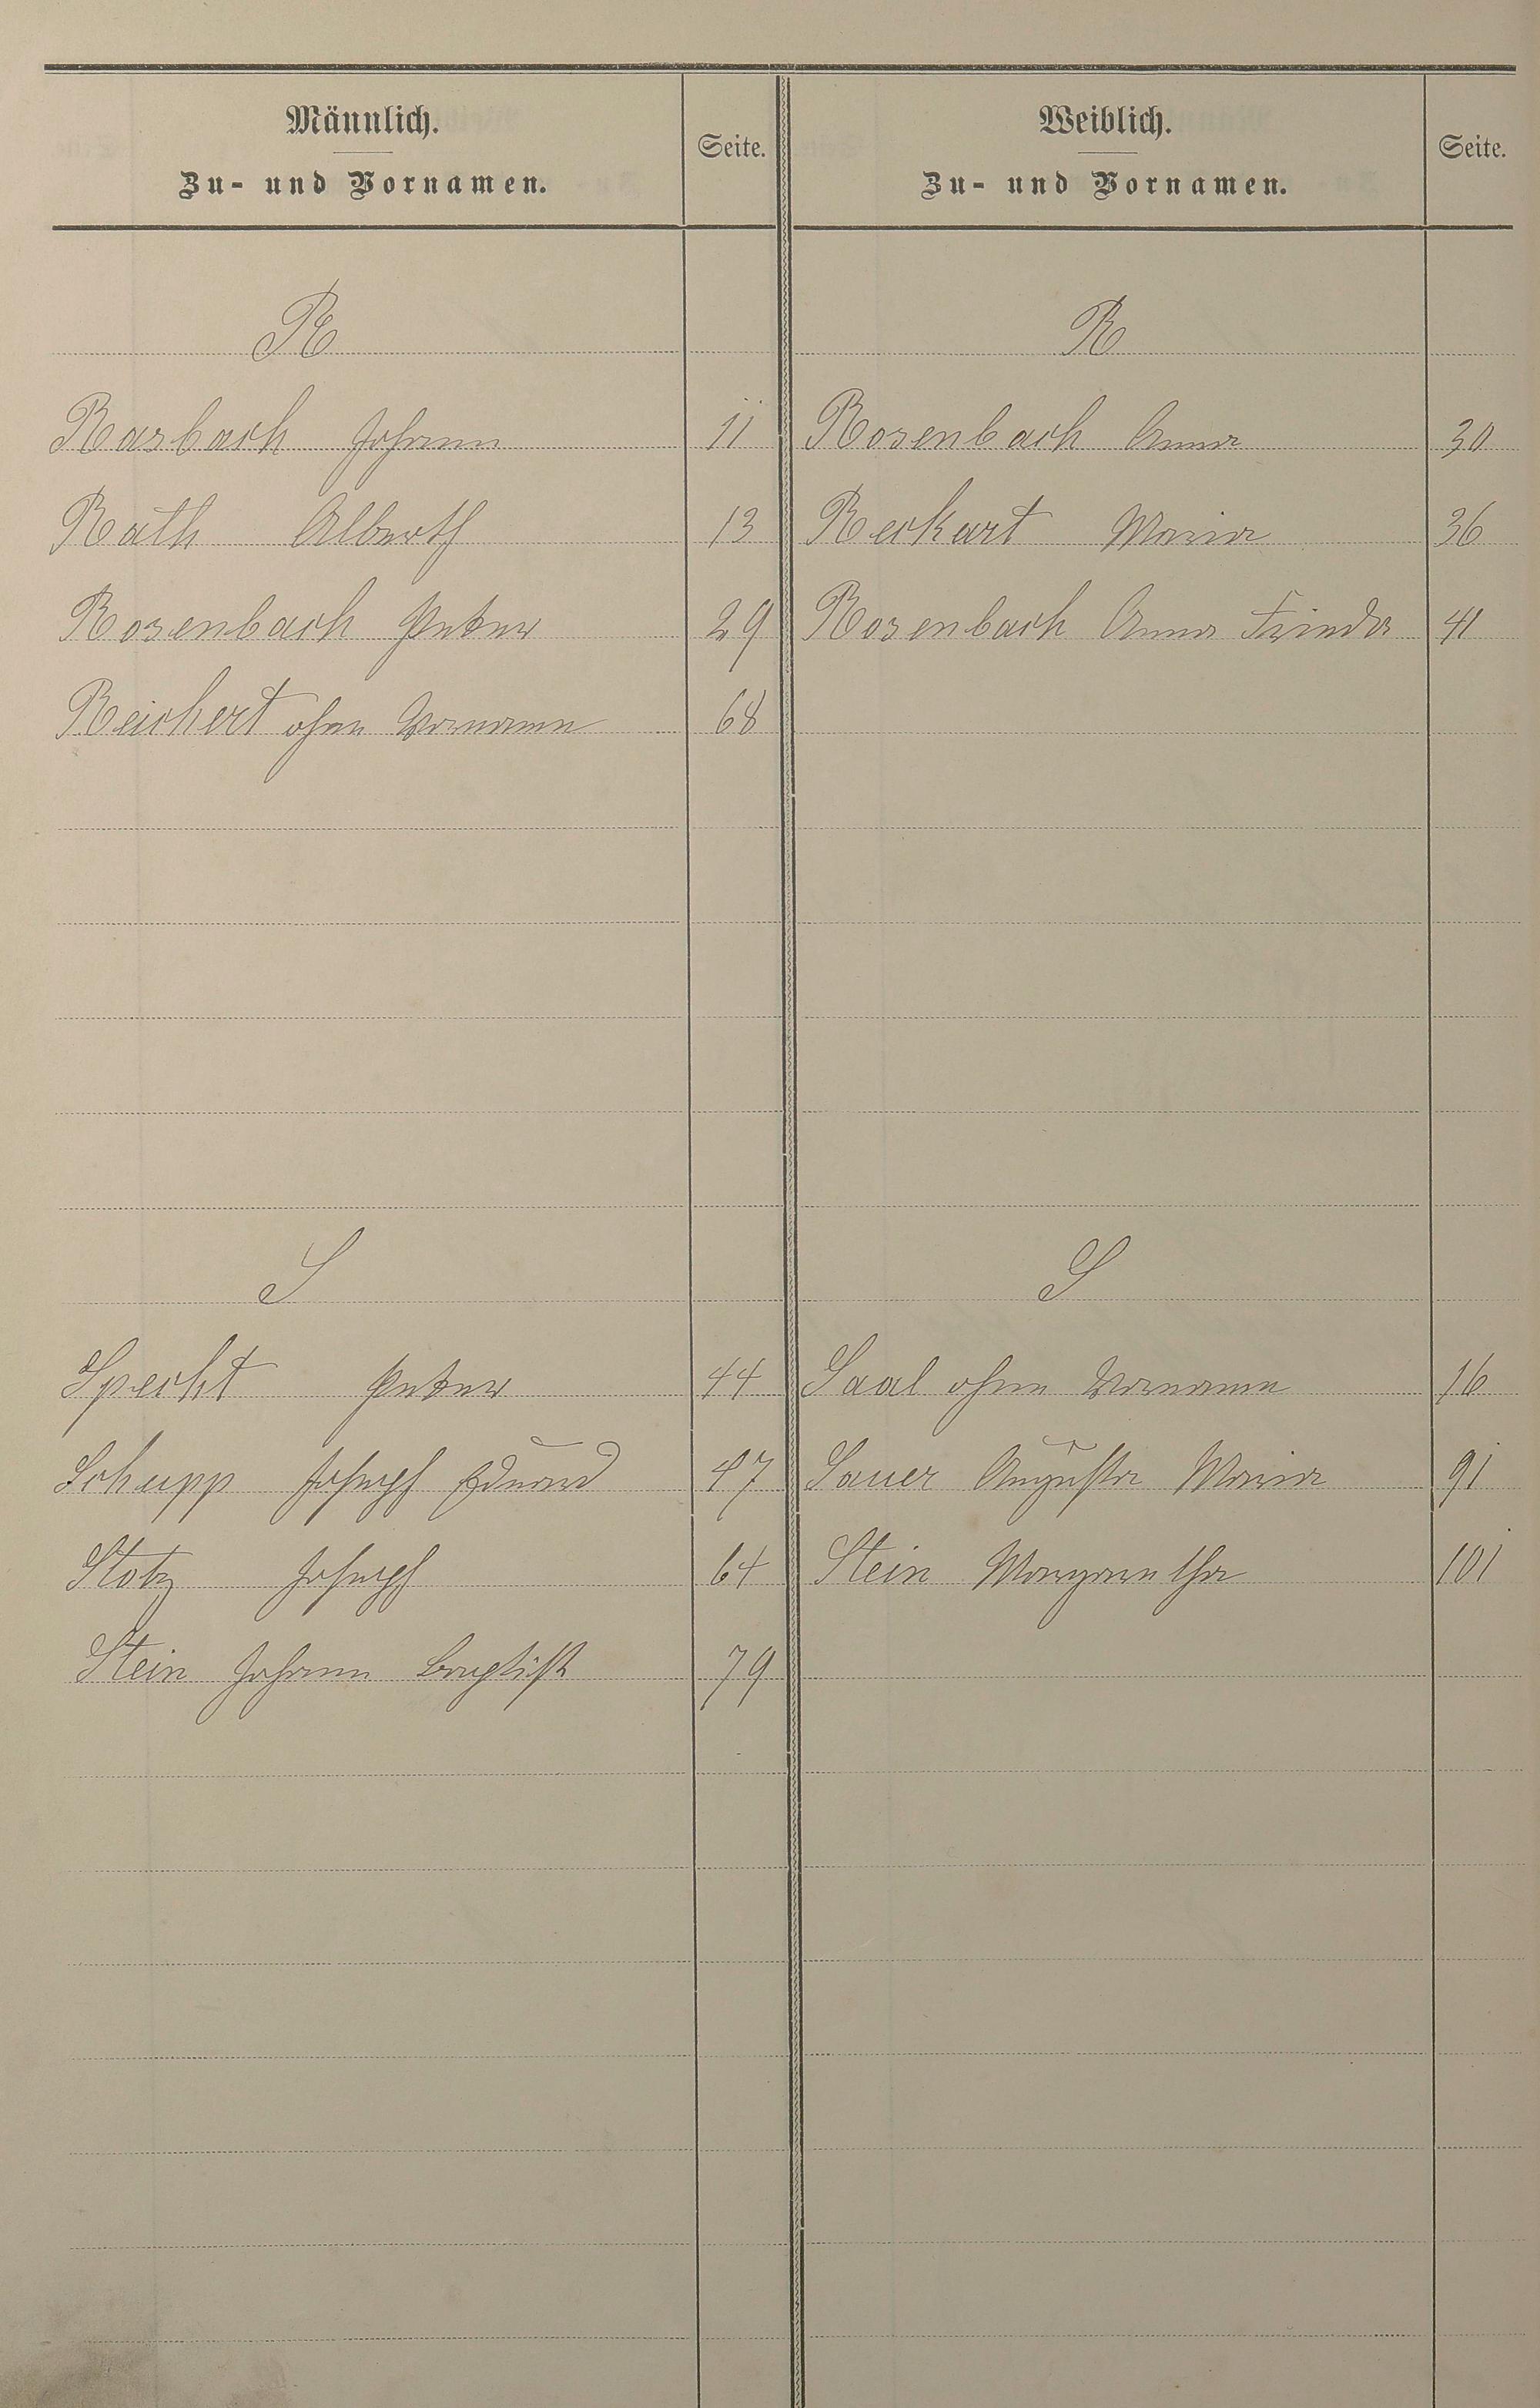 Männlich.
Zu- und Vornamen.
Seite.
Weiblich.
Zu- und Vornamen.
Seite.
R
R
Rasbach Johann 11
Rosenbach Anna 30
Rath Alberth 13
Reckart Maria 36
Rosenbach Peter 29
Rosenbach Anna Frieda 41
Reichert ohne Vornamen 68
S
S
Specht Peter 44
Saal ohne Vornamen 16
Schupp Joseph Eduard 47
Sauer Augusta Maria 91
Stotz Joseph 64
Stein Margaretha 101
Stein Johann Baptist 79